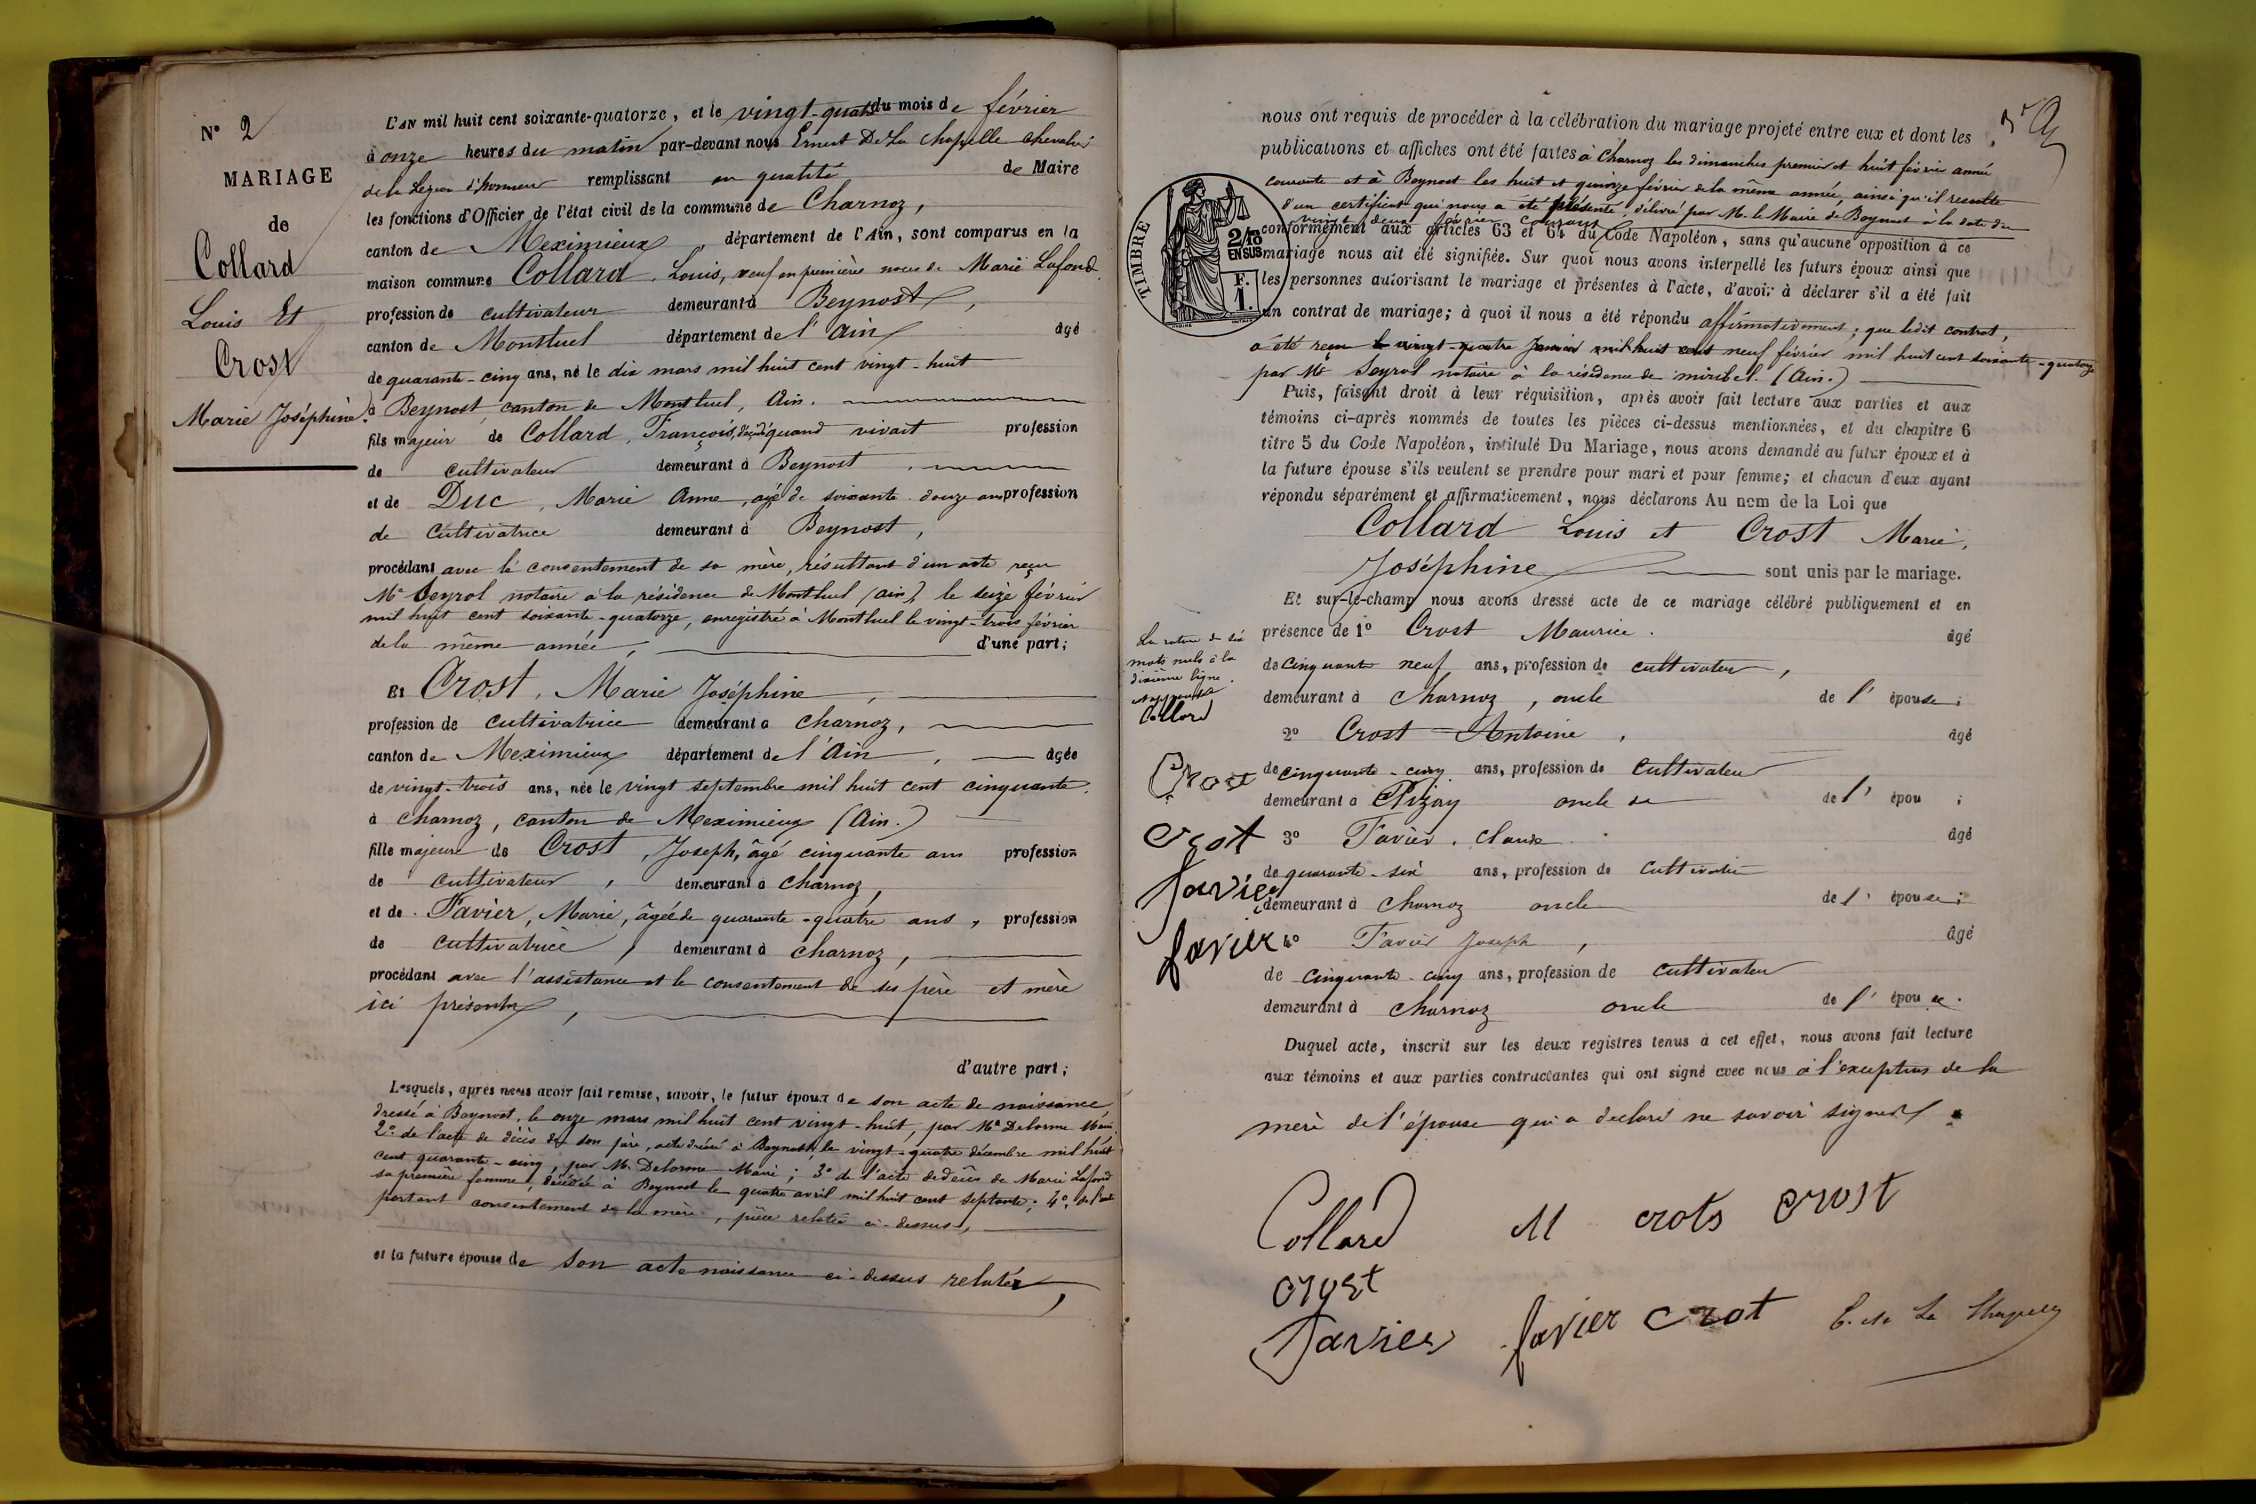 N° 2
MARIAGE
de
Collard
Louis Et
Crost
Marie Joséphine.
L'AN mil huit cent soixante-quatorze, et le vingt-quatre du mois de février
à onze heures du matin par-devant nous Ernest De La Chapelle chevalier
de la Légion d'honneur remplissant en qualité de Maire
les fonctions d'Officier de l'état civil de la commune de Charnoz,
canton de Meximieux, département de l'Ain, sont comparus en la
maison commune Collard, Louis, veuf en premières noces de Marie Lafond
profession de cultivateur demeurant à Beynost,
canton de Montluel département de l'Ain âgé
de quarante-cinq ans, né le dix mars mil huit cent vingt-huit
à Beynost, canton de Montluel, Ain.
fils majeur de Collard, François, décédé quand vivait profession
de cultivateur demeurant à Beynost,
et de Duc, Marie Anne, agé de soixante-douze ans profession
de Cultivatrice demeurant à Beynost,
procédant avec le consentement de sa mère, résultant d'un acte reçu
Me Seyrol notaire à la résidence de Montluel (ain) le seize février
mil huit cent soixante-quatorze, enregistré à Montluel le vingt-trois février
de la même année, d'une part;
Et Crost, Marie Joséphine,
profession de cultivatrice demeurant à Charnoz,
canton de Meximieux département de l'Ain, âgée
de vingt-trois ans, née le vingt septembre mil huit cent cinquante
à Charnoz, canton de Meximieux (Ain.)
fille majeure de Crost, Joseph, âgé cinquante ans profession
de cultivateur, demeurant à Charnoz,
et de Favier, Marie, âgée de quarante-quatre ans, profession
de cultivatrice, demeurant à Charnoz,
procédant avec l'assistance et le consentement de ses père et mère
ici présents,
d'autre part;
Lesquels, après nous avoir fait remise, savoir, le futur époux de son acte de naissance
dressé à Beynost, le onze mars mil huit cent vingt-huit, par Mr Delorme Maire
2° de l'acte de décès de son père, acte dressé à Beynost, le vingt-quatre décembre mil huit
cent quarante-cinq, par M. Delorme Maire; 3° de l'acte de décès de Marie Lafond
sa première femme, décédée à Beynost le quatre avril mil huit cent septante; 4° de l'acte
portant consentement de la mère, pièce relatée ci-dessus,
et la future épouse de son acte naissance ci-dessus relatés,
nous ont requis de procéder à la célébration du mariage projeté entre eux et dont les
publications et affiches ont été faites à Charnoz les dimanches premier et huit février année
courante et à Beynost les huit et quinze février de la même année, ainsi qu'il resulte
d'un certificat qui nous a été présenté, délivré par M. le Maire de Beynost à la date du
vingt deux février courant
conformément aux articles 63 et 64 du Code Napoléon, sans qu'aucune opposition à ce
mariage nous ait été signifiée. Sur quoi nous avons interpellé les futurs époux ainsi que
les personnes autorisant le mariage et présentes à l'acte, d'avoir à déclarer s'il a été fait
un contrat de mariage; à quoi il nous a été répondu affirmativement; que ledit contrat,
a été reçu le vingt-quatre Janvier mil huit cent neuf février mil huit cent soixante-quatorze
par Me Seyrol notaire à la résidence de miribel. (Ain.)
TIMBRE
2/10
EN SUS
F.
1.
Puis, faisant droit à leur réquisition, après avoir fait lecture aux parties et aux
témoins ci-après nommés de toutes les pièces ci-dessus mentionnées, et du chapitre 6
titre 5 du Code Napoléon, intitulé Du Mariage, nous avons demandé au futur époux et à
la future épouse s'ils veulent se prendre pour mari et pour femme; et chacun d'eux ayant
répondu séparément et affirmativement, nous déclarons Au nom de la Loi que
Collard Louis et Crost Marie,
Joséphine sont unis par le mariage.
Et sur-le-champ nous avons dressé acte de ce mariage célébré publiquement et en
présence de 1° Crost Maurice. âgé
de Cinquante neuf ans, profession de cultivateur,
demeurant à Charnoz, oncle de l'épouse;
2° Crost Antoine, âgé
de cinquante-cinq ans, profession de Cultivateur
demeurant à Rizay oncle se de l'épou;
3° Favier, Claude. âgé
de quarante-six ans, profession de Cultivateur
demeurant à Charnoz oncle de l'épouse;
4° Favier Joseph, âgé
de Cinquante-cinq ans, profession de Cultivateur
demeurant à Charnoz oncle de l'épouse.
La rature de six
mots nuls à la
dixième ligne.
Collard
Crost
crot
Favier
favier
Duquel acte, inscrit sur les deux registres tenus à cet effet, nous avons fait lecture
aux témoins et aux parties contractantes qui ont signé avec nous à l'exception de la
mère de l'épouse qui a declaré ne savoir signer.
Collard M crots crost
crost
Favier favier crot E. de La Chapelle